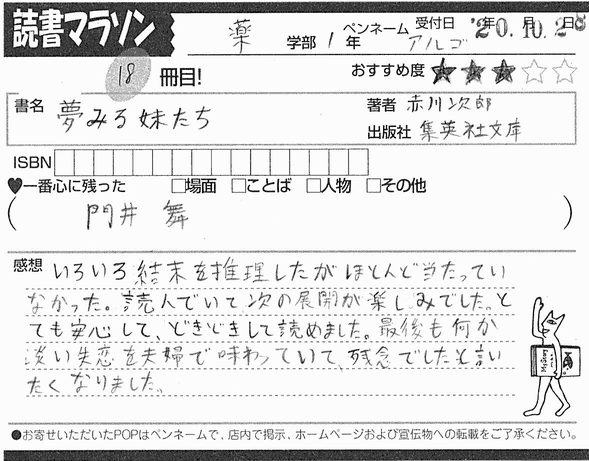 読書マラソン
薬 学部 1 年 ペンネーム アルゴ 受付日 '20年10月28日
18 冊目! おすすめ度 ★★★☆☆
書名 夢みる妹たち 著者 赤川次郎
出版社 集英社文庫
ISBN
♥一番心に残った □場面 □ことば □人物 □その他
( 門井 舞 )
感想 いろいろ結末を推理したがほとんど当たってい
なかった。読んでいて次の展開が楽しみでした。と
ても安心して、どきどきして読めました。最後も何か
淡い失恋を夫婦で味わっていて、残念でしたと言い
たくなりました。
●お寄せいただいたPOPはペンネームで、店内で掲示、ホームページおよび宣伝物への転載をご了承ください。